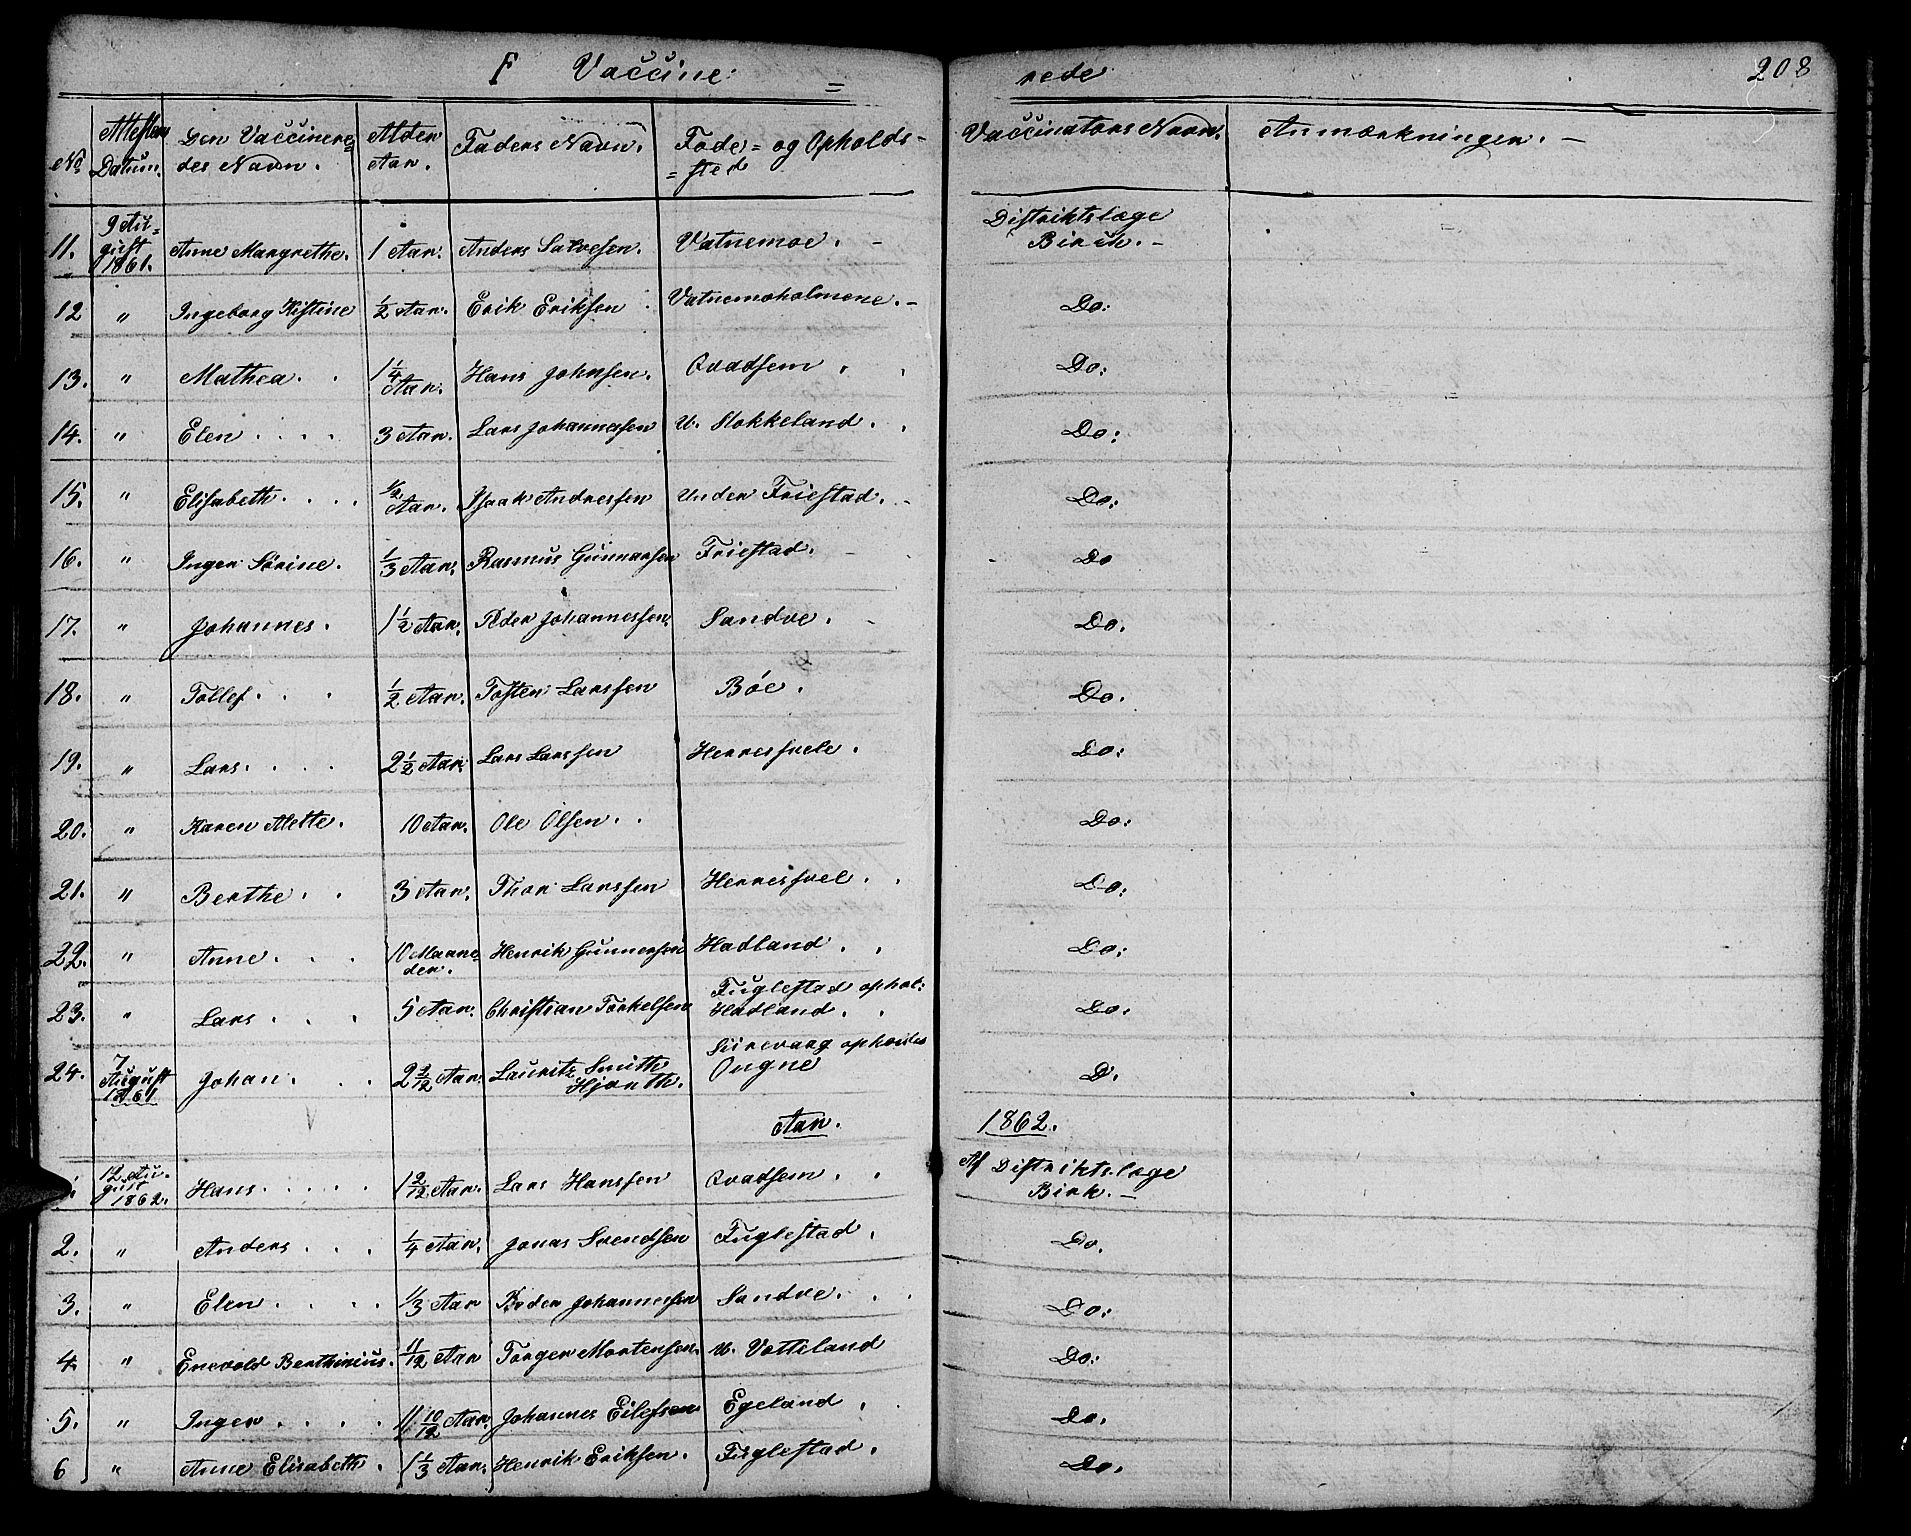 F Vaccine= rede 208
No Attestens Datum. Den Vaccinere=des Navn. Alder Aar. Faders Navn. Føde= og Opholds=sted Vaccinatørs Navn. Anmærkninger. -
11. 9 August 1861. Anne Margrethe. 1 Aar. Anders Salvesen. Vatnemoe. - Distriktslæge Birch. -
12 " Ingeborg Kistine 1/2 Aar. Erik Eriksen Vatnemoholmene. - Do:
13. " Mathea. . 1 1/4 Aar. Hans Johnsen. Qvadsem . Do:
14. " Elen . . . . 3 Aar. Lars Johannessen U. Stokkeland. . Do:
15. " Elisabeth. . . . 1/2 Aar. Isaak Andressen Under Friestad. - Do:
16. " Inger Sørine. 1/3 Aar. Rasmus Gunnarsen Friestad. Do
17. " Johannes. 1 1/2 Aar. Peder Johannessen. Sandve. - Do.
18. " Tollef. . . 1/2 Aar. Tosten Larssen Bøe. Do.
19. " Lars. . . . 2 1/2 Aar. Lars Larssen Herresvele. Do:
20. " Karen Mette. 10 Aar. Ole Olsen. . Do:
21. " Berthe . . 3 Aar. Thor Larssen Herresvel. . Do:
22. " Anne. . . . 10 Maaneder. Henrik Gunnersen Hadland. . Do:
23. " Lars . . . 5 Aar. Christian Torkelsen Fuglestad ophol: Hadland. . Do.
24. 7 August 1861 Johan. . . 2 2/12 Aar. Lauritz Smith Hjorth. Siirevaag opholdes Ougne D.
Aar. 1862.
1. 12 August 1862. Hans. . . . . 1 2/12 Aar. Lars Hanssen Qvadsem. . Af Distriktslæge Birk. -
2. " Anders . . . 1/4 Aar. Jonas Svendsen Fuglestad. Do.
3. " Elen . . . . 1/3 Aar Peder Johannessen Sandve. . . Do:
4. " Enevold Berthinius. 11/12 Aar Torger Mortensen. U. Vatteland Do:
5. " Inger . . . . 11 10/12 Aar. Johannes Eilefsen Egeland . . Do.
6 " Anne Elisabeth . 1 1/3 Aar. Henrik Eriksen. Fuglestad. Do.